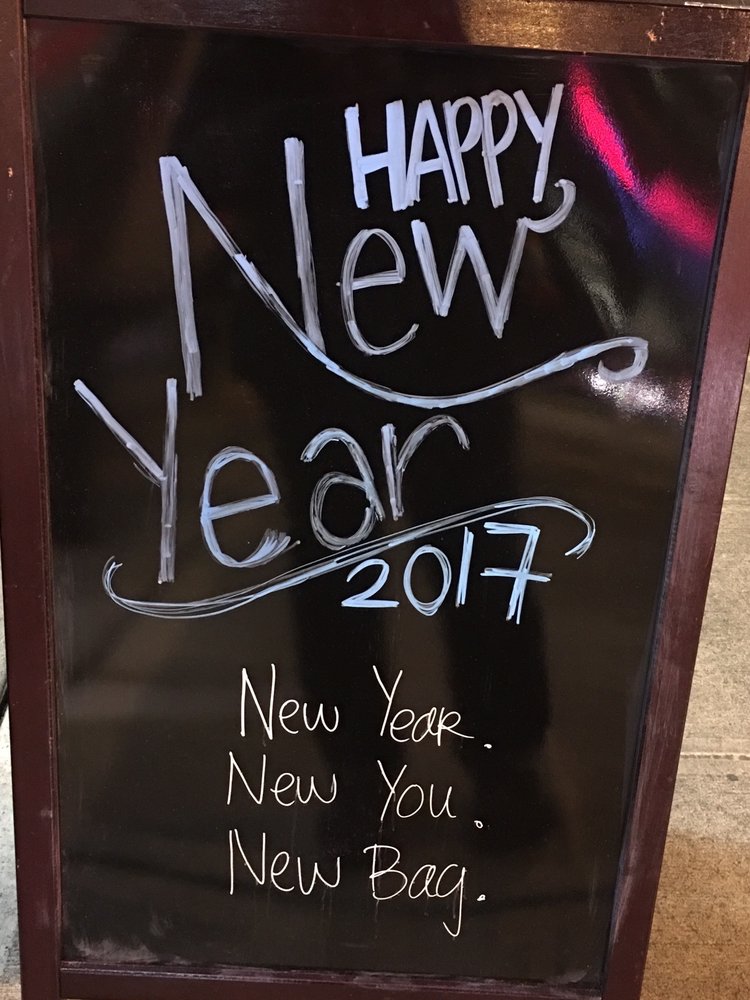 HAPPY
New
Year
2017
New Year.
New You.
New Bag.